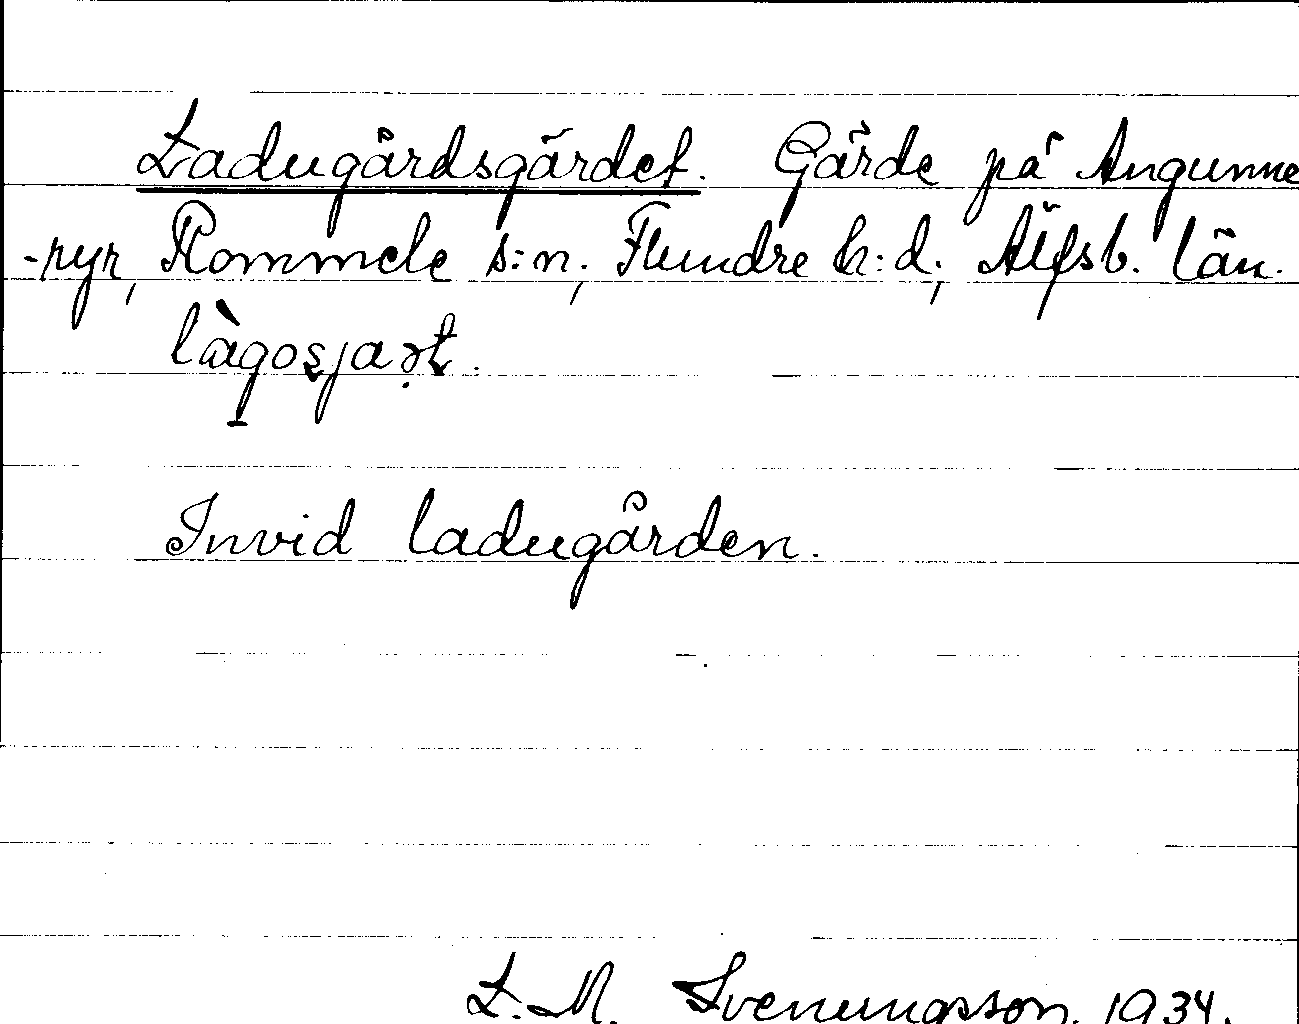 Ladugårdsgärdet. Gärde på Angunne
-ryr, Rommele s:n, Flundre h:d, Älfsb. län.
làgosjaṛt.
Invid ladugården.
L. M. Svenungsson. 1934.